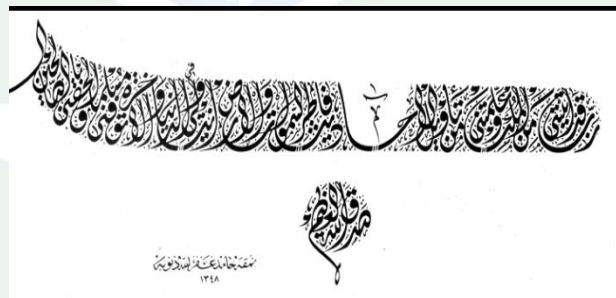 رب قد آتيتني من الملك وعلمتني من تأويل الأحاديث فاطر السموات والأرض أنت وليي في الدنيا والآخرة توفني مسلما وألحقني بالصالحين
صدق الله العظيم
نمقه حامد غفر الله ذنوبه
١٣٤٨